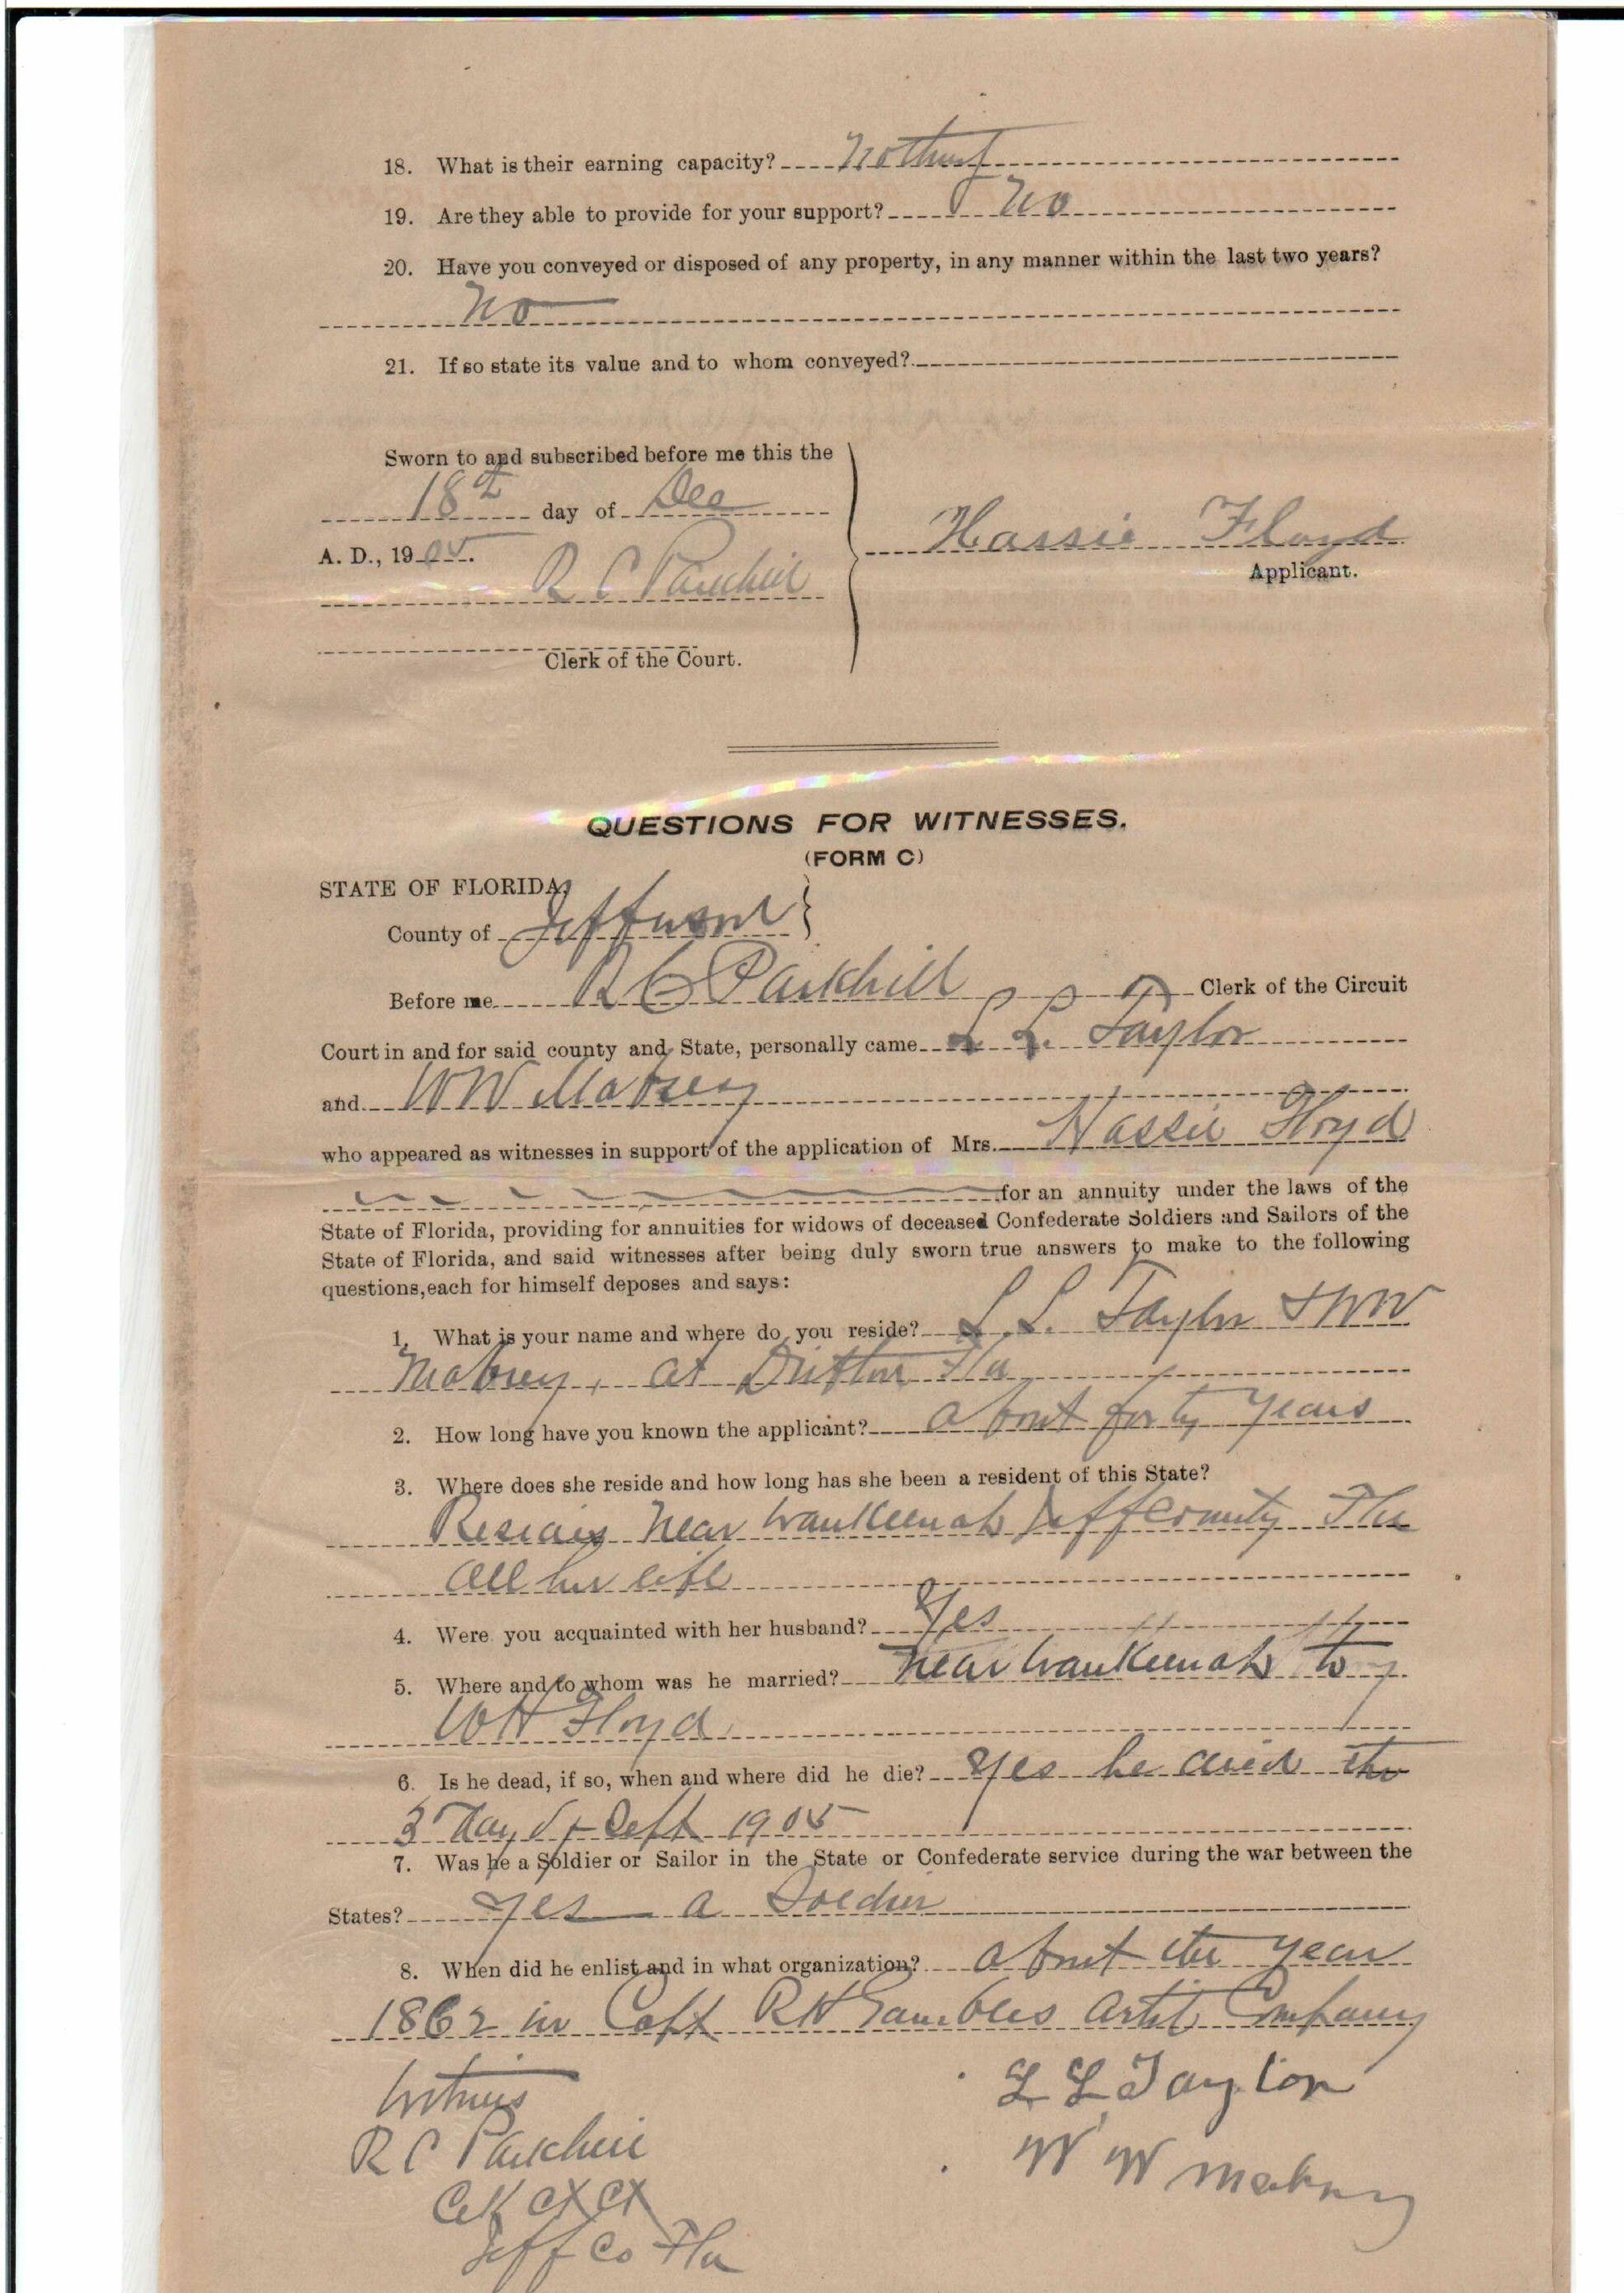 18. What is their earning capacity? Nothing
19. Are they able to provide for your support? No
20. Have you conveyed or disposed of any property, in any manner within the last two years?
No
21. If so state its value and to whom conveyed?
Sworn to and subscribed before me this the
18th day of Dec
A. D., 1905.
R C Parkhill
Clerk of the Court.
Hassie Floyd
Applicant.
QUESTIONS FOR WITNESSES.
(FORM C)
STATE OF FLORIDA,
County of Jefferson
Before me R C Parkhill Clerk of the Circuit
Court in and for said county and State, personally came L. L. Taylor
and W W Mabrey
who appeared as witnesses in support of the application of Mrs. Hassie Floyd
for an annuity under the laws of the
State of Florida, providing for annuities for widows of deceased Confederate Soldiers and Sailors of the
State of Florida, and said witnesses after being duly sworn true answers to make to the following
questions, each for himself deposes and says:
1. What is your name and where do you reside? L. L. Taylor & W W
Mabrey, at Drifton Fla
2. How long have you known the applicant? about forty years
3. Where does she reside and how long has she been a resident of this State?
Resides Near Waukeenah Jeff County Fla
all her life
4. Were you acquainted with her husband? Yes
5. Where and to whom was he married? Near Waukeenah to
W H Floyd
6. Is he dead, if so, when and where did he die? Yes he died the
3 day of Sept 1905
7. Was he a Soldier or Sailor in the State or Confederate service during the war between the
States? Yes a Soldier
8. When did he enlist and in what organization? about the year
1862 in Capt R H Gambles Artil Company
Witness
R C Parkhill
Clk Ct Ct
Jeff Co Fla
L L Taylor
W W Mabrey